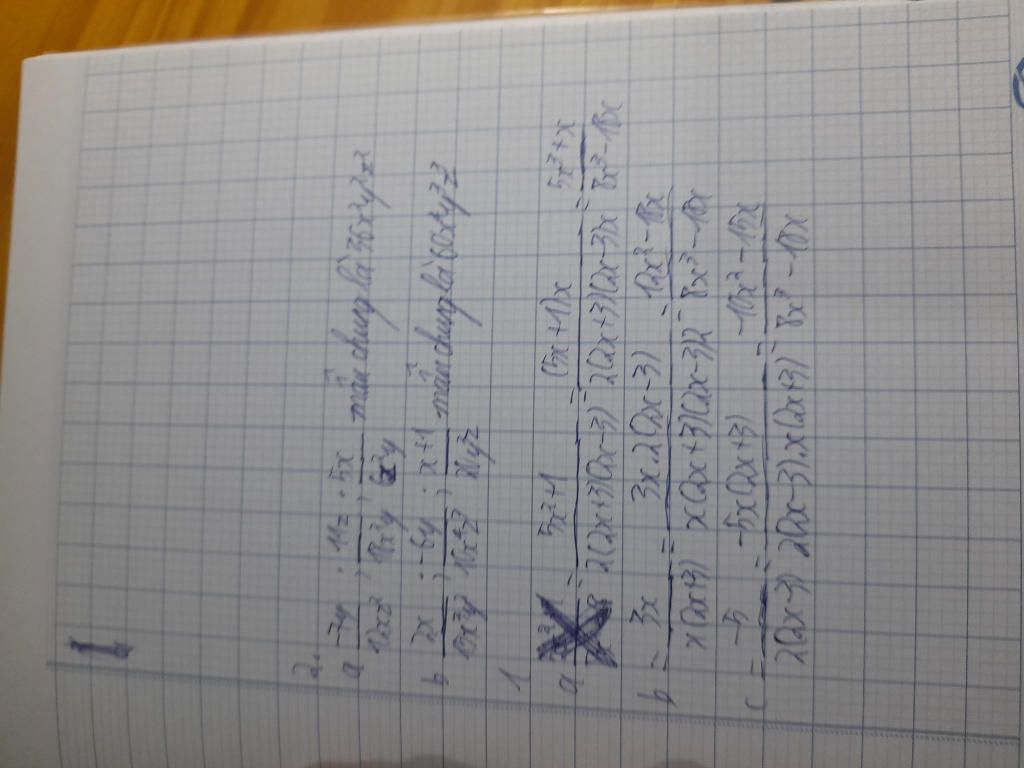 2.
a -7y/12xz² ; 11z/18x²y ; 5x/6x²y mẫu chung là 36x²y²z²
b 2x/15x³y² ; -6y/10x²z³ ; x+1/20yz mẫu chung là 60x³y²z³
1
a = 5x²+1/2(2x+3)(2x-3) = (5x²+1)x/2(2x+3)(2x-3)x = 5x³+x/8x³-18x
b = 3x/x(2x+3) = 3x.2(2x-3)/x(2x+3)(2x-3)2 = 12x²-18x/8x³-18x
c = -5/2(2x-3) = -5x(2x+3)/2(2x-3).x(2x+3) = -10x²-15x/8x³-18x